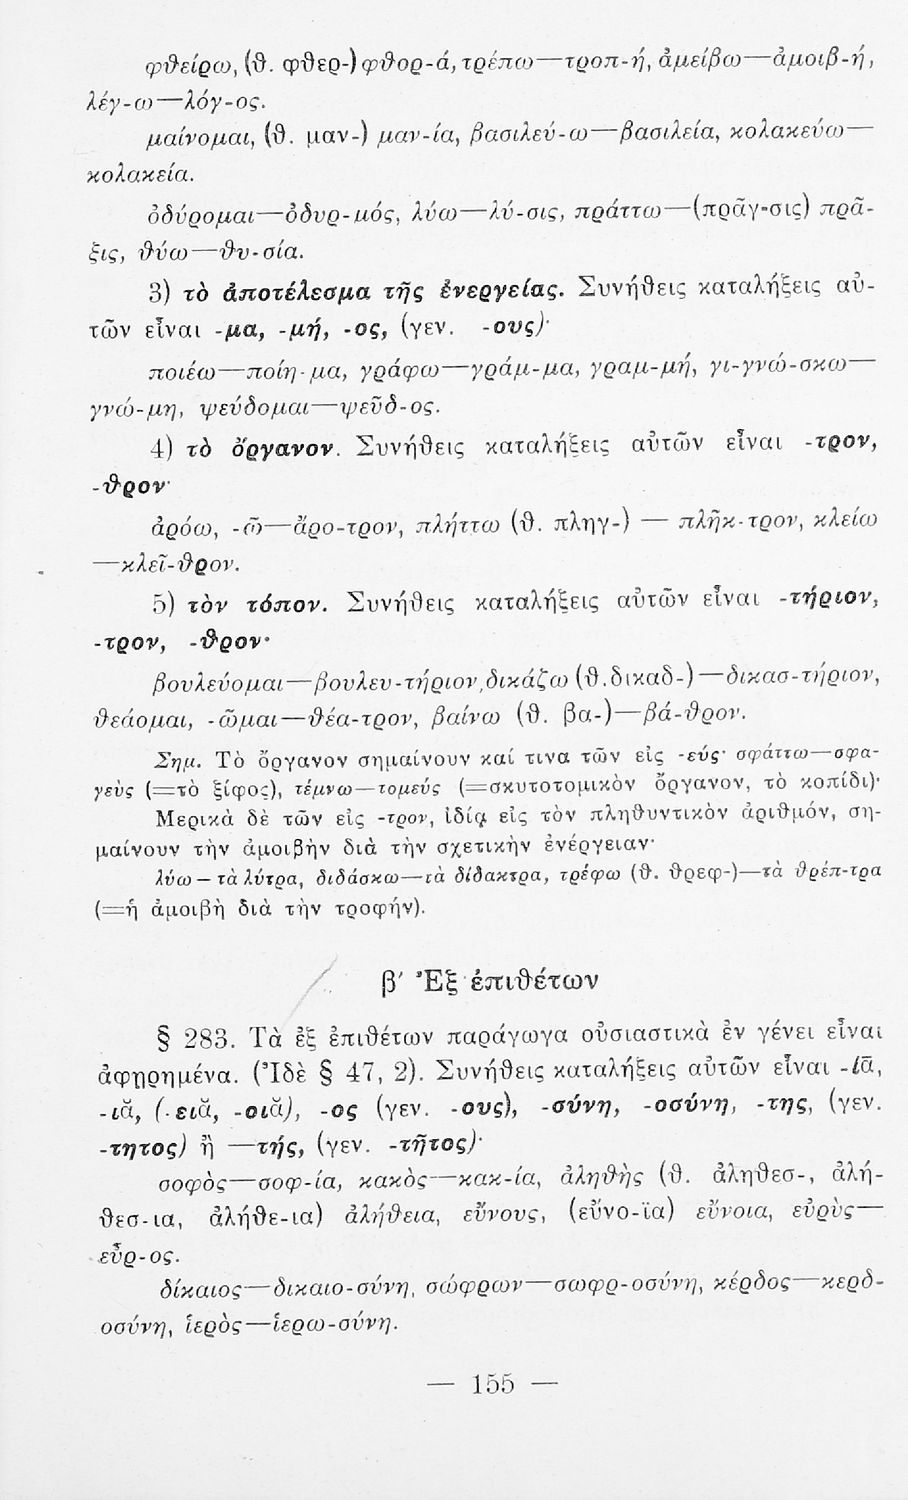 φθείρω, (θ. φθερ-) φθορ-ά, τρέπω—τροπ-ή, ἀμείβω—ἀμοιβ-ή,
λέγ-ω—λόγ-ος.
μαίνομαι, (θ. μαν-) μαν-ία, βασιλεύ-ω—βασιλεία, κολακεύω—
κολακεία.
ὀδύρομαι—ὀδυρ-μός, λύω—λύ-σις, πράττω—(πρᾶγ-σις) πρᾶ-
ξις, θύω—θυ-σία.
3) τὸ ἀποτέλεσμα τῆς ἐνεργείας. Συνήθεις καταλήξεις αὐ-
τῶν εἶναι -μα, -μή, -ος, (γεν. -ους)·
ποιέω—ποίη-μα, γράφω—γράμ-μα, γραμ-μή, γι-γνώ-σκω—
γνώ-μη, ψεύδομαι—ψεῦδ-ος.
4) τὸ ὄργανον. Συνήθεις καταλήξεις αὐτῶν εἶναι -τρον,
-θρον·
ἀρόω, -ῶ—ἄρο-τρον, πλήττω (θ. πληγ-) — πλῆκ-τρον, κλείω
—κλεῖ-θρον.
5) τὸν τόπον. Συνήθεις καταλήξεις αὐτῶν εἶναι -τήριον,
-τρον, -θρον·
βουλεύομαι—βουλευ-τήριον, δικάζω (θ. δικαδ-)—δικασ-τήριον,
θεάομαι, -ῶμαι—θέα-τρον, βαίνω (θ. βα-)—βά-θρον.
Σημ. Τὸ ὄργανον σημαίνουν καί τινα τῶν εἰς -εύς· σφάττω—σφα-
γεὺς (=τὸ ξίφος), τέμνω—τομεύς (=σκυτοτομικὸν ὄργανον, τὸ κοπίδι)·
Μερικὰ δὲ τῶν εἰς -τρον, ἰδίᾳ εἰς τὸν πληθυντικὸν ἀριθμόν, ση-
μαίνουν τὴν ἀμοιβὴν διὰ τὴν σχετικὴν ἐνέργειαν·
λύω—τὰ λύτρα, διδάσκω—τὰ δίδακτρα, τρέφω (θ. θρεφ-)—τὰ θρέπ-τρα
(=ἡ ἀμοιβὴ διὰ τὴν τροφήν).
β′ Ἐξ ἐπιθέτων
§ 283. Τὰ ἐξ ἐπιθέτων παράγωγα οὐσιαστικὰ ἐν γένει εἶναι
ἀφῃρημένα. (Ἰδὲ § 47, 2). Συνήθεις καταλήξεις αὐτῶν εἶναι -ίᾱ,
-ιᾰ, (-ειᾰ, -οιᾰ), -ος (γεν. -ους), -σύνη, -οσύνη, -της, (γεν.
-τητος) ἢ —τής, (γεν. -τῆτος)·
σοφὸς—σοφ-ία, κακὸς—κακ-ία, ἀληθὴς (θ. ἀληθεσ-, ἀλή-
θεσ-ια, ἀλήθε-ια) ἀλήθεια, εὔνους, (εὔνο-ϊα) εὔνοια, εὐρὺς—
εὖρ-ος.
δίκαιος—δικαιο-σύνη, σώφρων—σωφρ-οσύνη, κέρδος—κερδ-
οσύνη, ἱερὸς—ἱερω-σύνη.
— 155 —